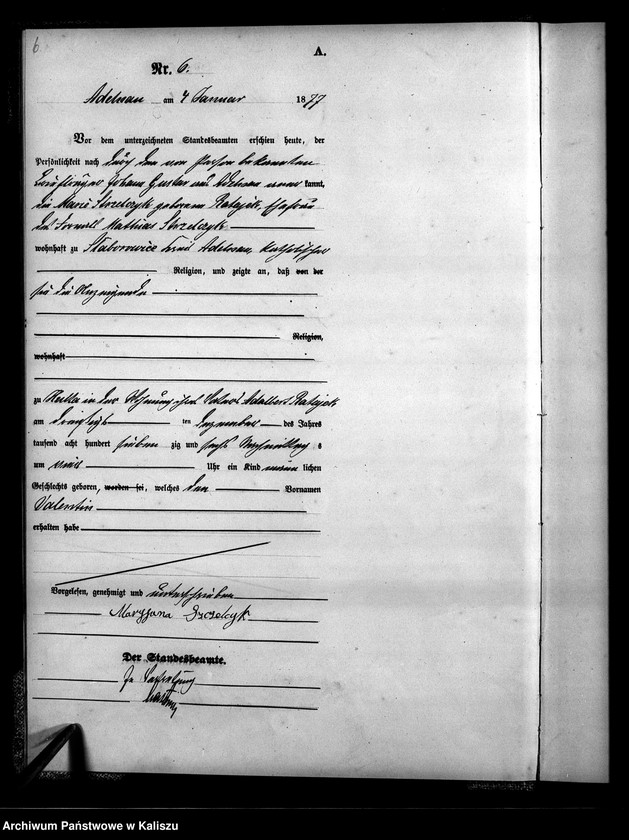 6
A.
Nr. 6.
Adelnau am 4 Januar 1877
Vor dem unterzeichneten Standesbeamten erschien heute, der
Persönlichkeit nach durch den von Person bekannten
Johann Gustav aus Adelnau kannt,
die Marie Strzelczyk geborene Ratajek, Ehefrau
des Mathias Strzelczyk
wohnhaft zu Adelnau, katholischer
Religion, und zeigte an, daß von der
Religion,
wohnhaft
zu in der Wohnung ihres Adalbert Ratajek
am dreißigsten Dezember des Jahres
tausend acht hundert sieben zig und sechs Nachmittags
um Uhr ein Kind männlichen
Geschlechts geboren, worden sei, welches den Vornamen
Valentin
erhalten habe
Vorgelesen, genehmigt und unterschrieben
Maryjana
Der Standesbeamte.
In Vertretung
Archiwum Państwowe w Kaliszu